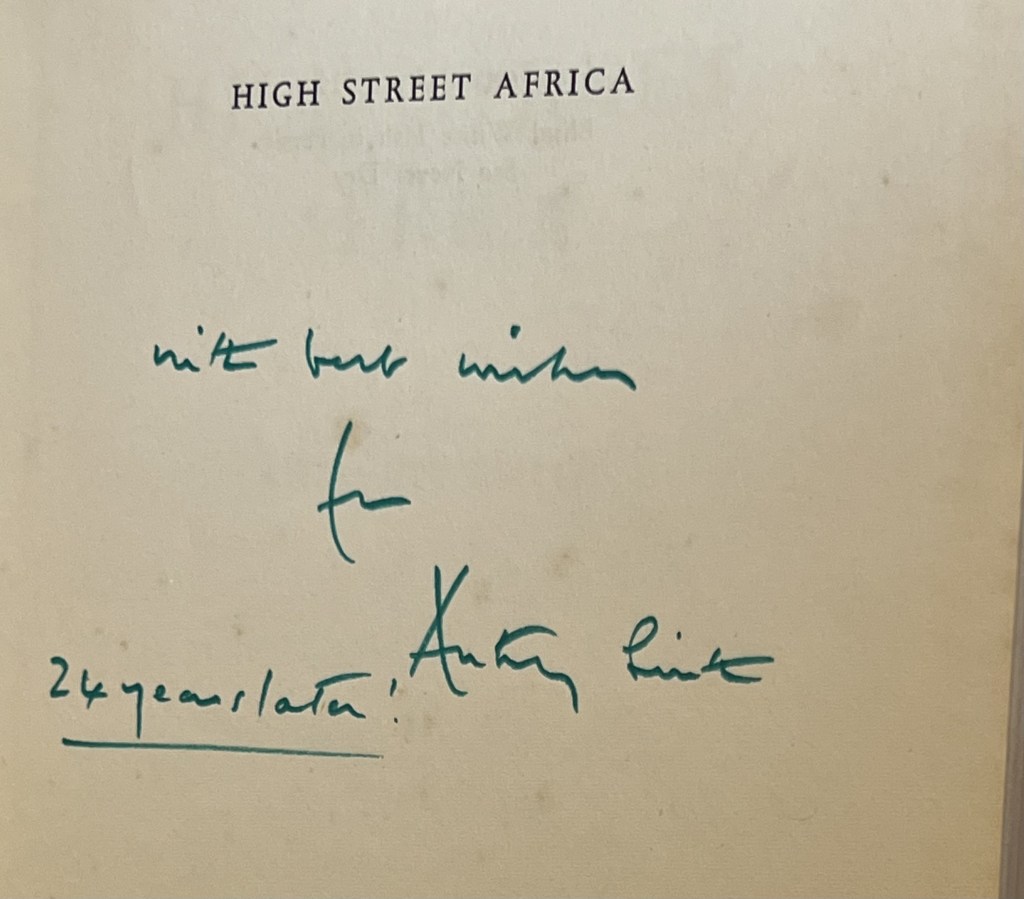 HIGH STREET AFRICA
with best wishes
from
Anthony Smith
24 years later!